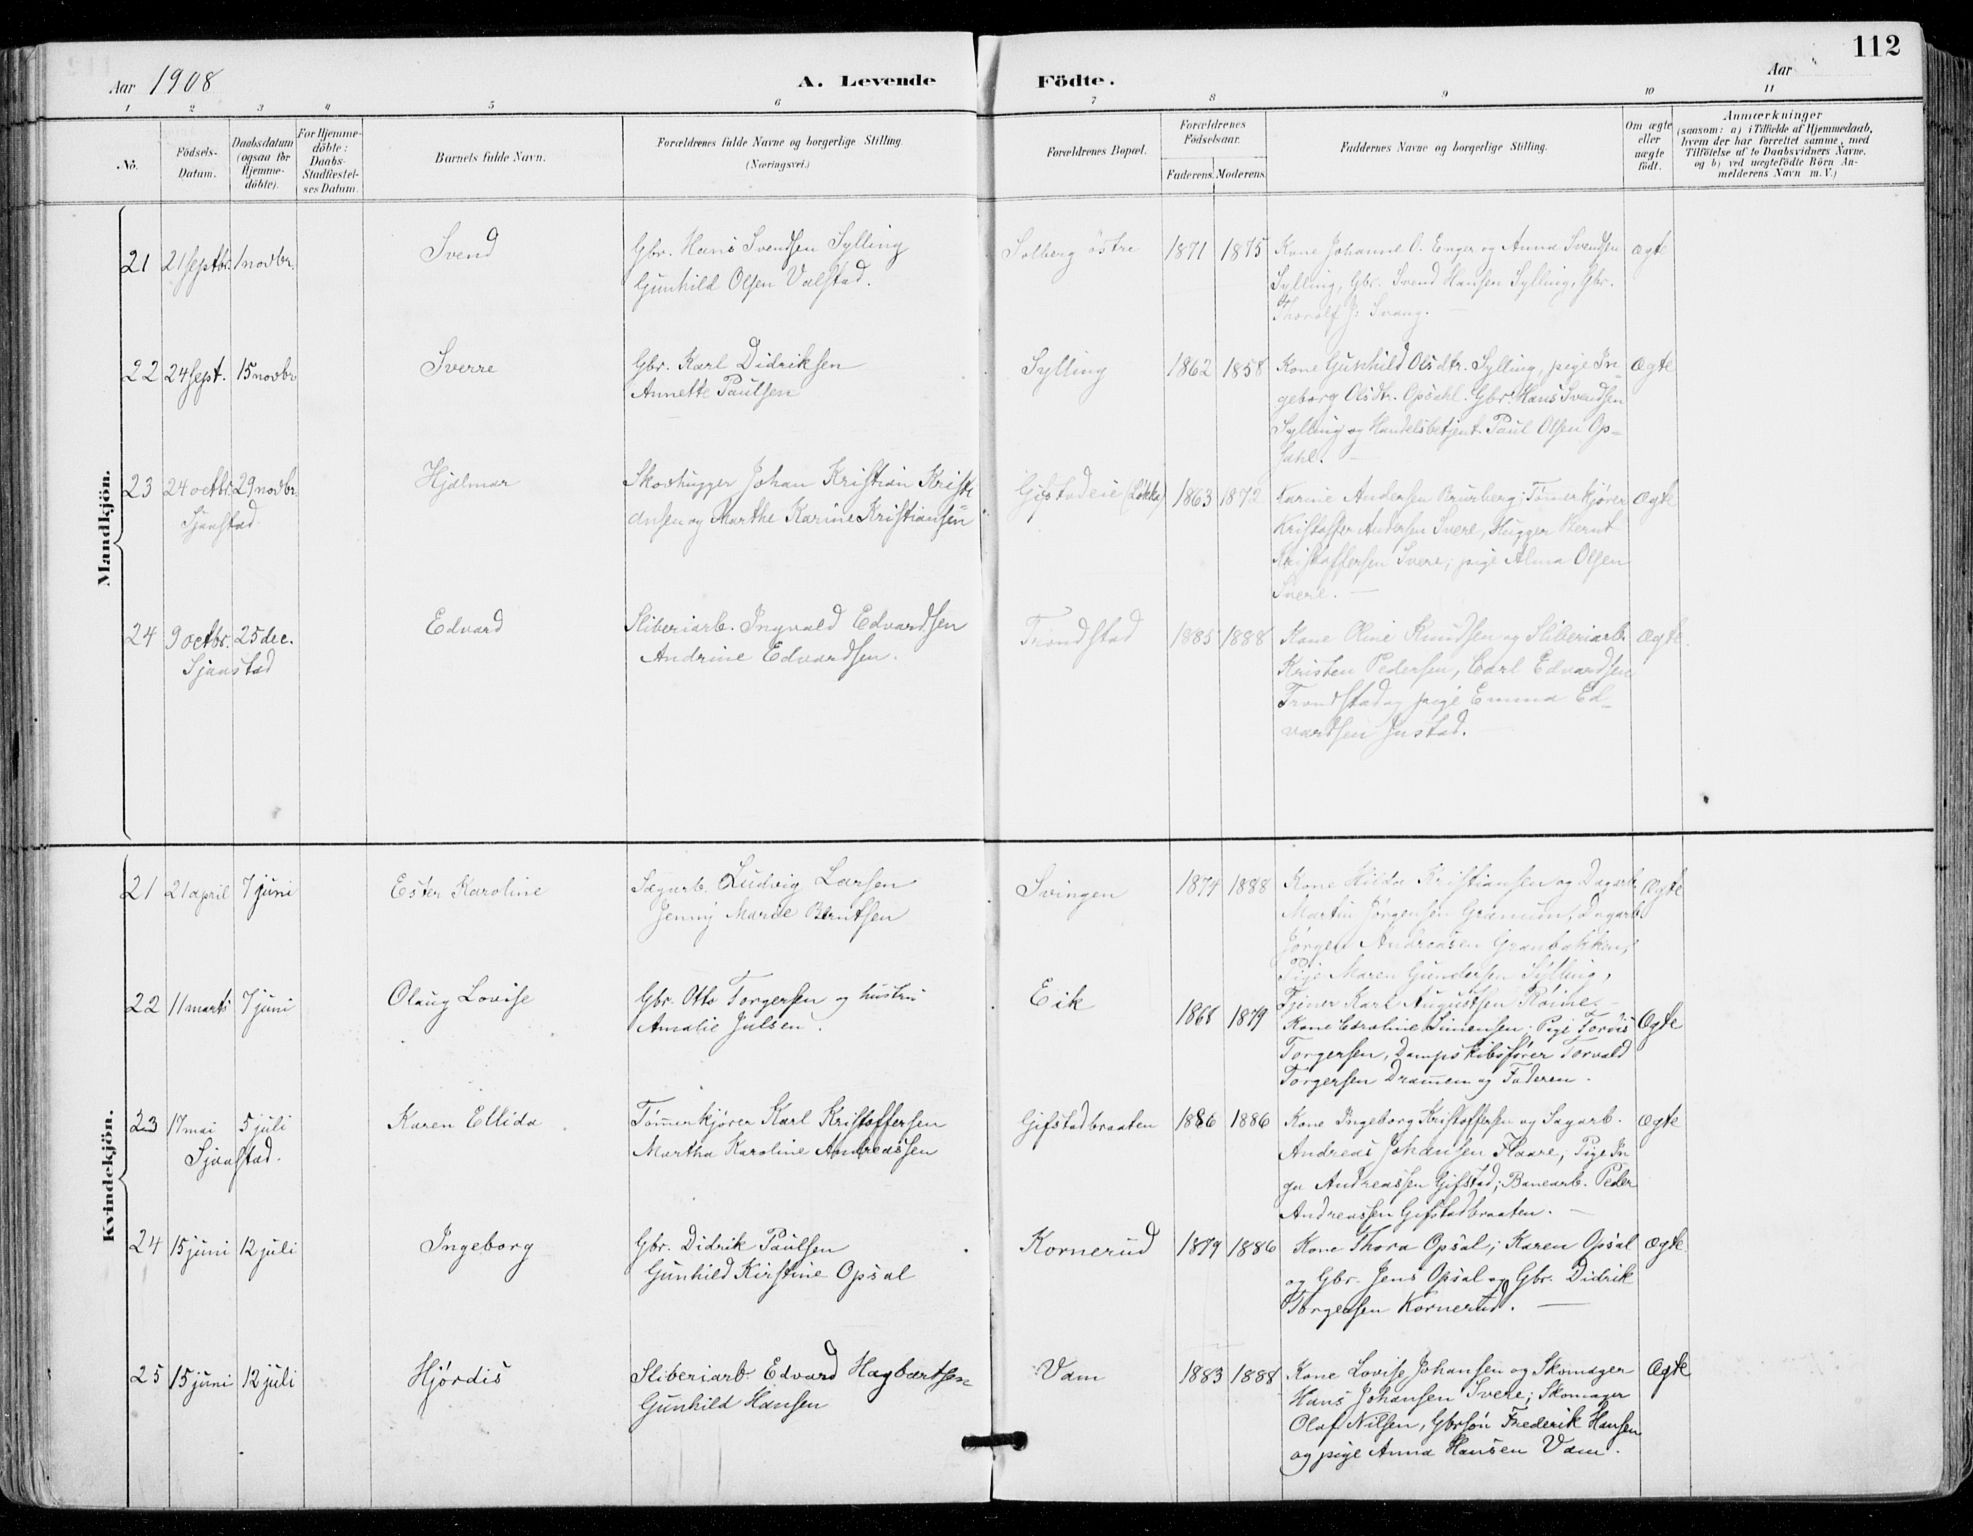 112
Aar 1908
A. Levende Födte.
Aar
1 2 3 4 5 6 7 8 9 10 11
No. Födsels-Datum. Daabsdatum (ogsaa for Hjemme-döbte). For Hjemme-döbte: Daabs-Stadfæstel-ses Datum. Barnets fulde Navn. Forældrenes fulde Navne og borgerlige Stilling. (Næringsvei.) Forældrenes Bopæl. Forældrenes Födselsaar. Faderens. Moderens. Faddernes Navne og borgerlige Stilling. Om ægte eller uægte födt. Anmærkninger (saasom: a) i Tilfælde af Hjemmedaab, hvem der har forrettet samme, med Tilföielse af to Daabsvidners Navne, og b) ved uægtefödte Börn An-melderens Navn m. V.)
Mandkjön.
21 21 septbr. 1 novbr. Svend Gbr. Hans Svendsen Sylling Solberg östre 1871 1875 Kone Johanne O. Enger og Anna Svendsen Ægte
Gunhild Olsen Valstad. Sylling, Gbr. Svend Hansen Sylling, Gbr.
Thorolf J. Svang.
22 24 sept. 15 novbr Sverre Gbr. Karl Didriksen Sylling 1862 1858 Kone Gunhild Olsdtr. Sylling, pige In- Ægte
Annette Paulsen geborg Olsdtr. Opsahl. Gbr. Hans Svendsen
Sylling og Handelsbetjent Paul Olsen Op-
sahl.
23 24 octbr. 29 novbr. Hjalmar Skovhugger Johan Kristian Kristi Gifstadeie (Løkka) 1863 1872 Karine Andersen Brurberg; Tømerkjører Ægte
Sjaastad. ansen og Marthe Karine Kristiansen Kristoffer Andersen Svere, Hugger Bernt
Kristoffersen Svere; pige Alma Olsen
Svere.
24 9 octbr. 25 dec. Edvard Sliberiarb. Ingvald Edvardsen Trondstad 1885 1888 Kone Oline Knudsen og Sliberiarb. Ægte
Sjaastad Andrine Edvardsen. Kristen Pedersen, Carl Edvardsen
Trondstad og pige Emma Ed-
vardsen Justad.
Kvindekjön.
21 21 april 7 juni Ester Karoline Sagarb. Ludvig Larsen Svingen 1874 1888 Kone Hilda Kristiansen og Dagarb. Ægte
Jenny Marie Berntsen Martin Jørgensen Grønum, Dagarb.
Jørgen Andreasen Grønbakken,
Pige Maren Gundersen Sylling,
Tjener Karl Augustsen
22 11 marts 7 juni Olaug Lovise Gbr. Otto Torgersen og hustru Eik 1868 1879 Kone Caroline Simensen; Pige Torvis Ægte
Amalie Julsen. Torgersen, Dampskibsfører Torvald
Torgersen Dramen og Faderen.
23 17 mai 5 juli Karen Ellida Tømmerkjører Karl Kristoffersen Gifstadbraaten 1886 1886 Kone Ingeborg Kristoffersen og Sagarb. Ægte
Sjaastad. Martha Karoline Andreassen Andreas Johansen Haare; Pige In
ga Andreassen Gifstad; Banearb. Peder
Andreassen Gifstadbraaten.
24 15 juni 12 juli Ingeborg Gbr. Didrik Paulsen Kornerud 1879 1886 Kone Thora Opsal; Karen Opsal Ægte
Gunhild Kirstine Opsal og Gbr. Jens Opsal og Gbr. Didrik
Torgersen Kornerud.
25 15 juni 12 juli Hjørdis Sliberiarb Edvard Hagbartsen Vam 1883 1888 Kone Lovise Johansen og Skomager Ægte
Gunhild Hansen Hans Johansen Svere; Skomager
Olaf Nilsen, Gbrsøn Frederik Hansen
og pige Anna Hansen Vam.